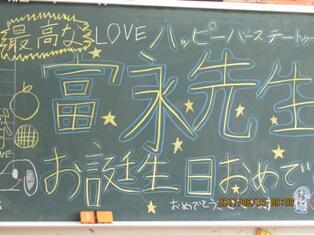 最高な LOVE ハッピーバースデートゥー
富永先生
お誕生日おめで
おめでとうござ